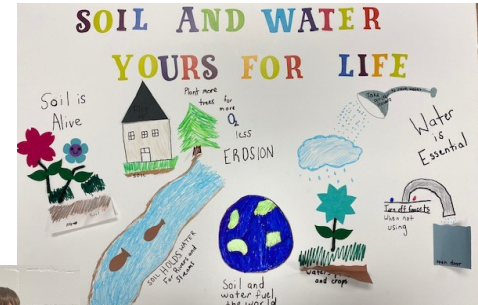 SOIL AND WATER
YOURS FOR LIFE
Soil is
Alive
Plant more
trees for
more
O2
less
EROSION
Water
is
Essential
Turn off faucets
when not
using
SOIL HOLDS WATER
For Rivers and
streams
Soil and
water fuel
the world
water
and crops